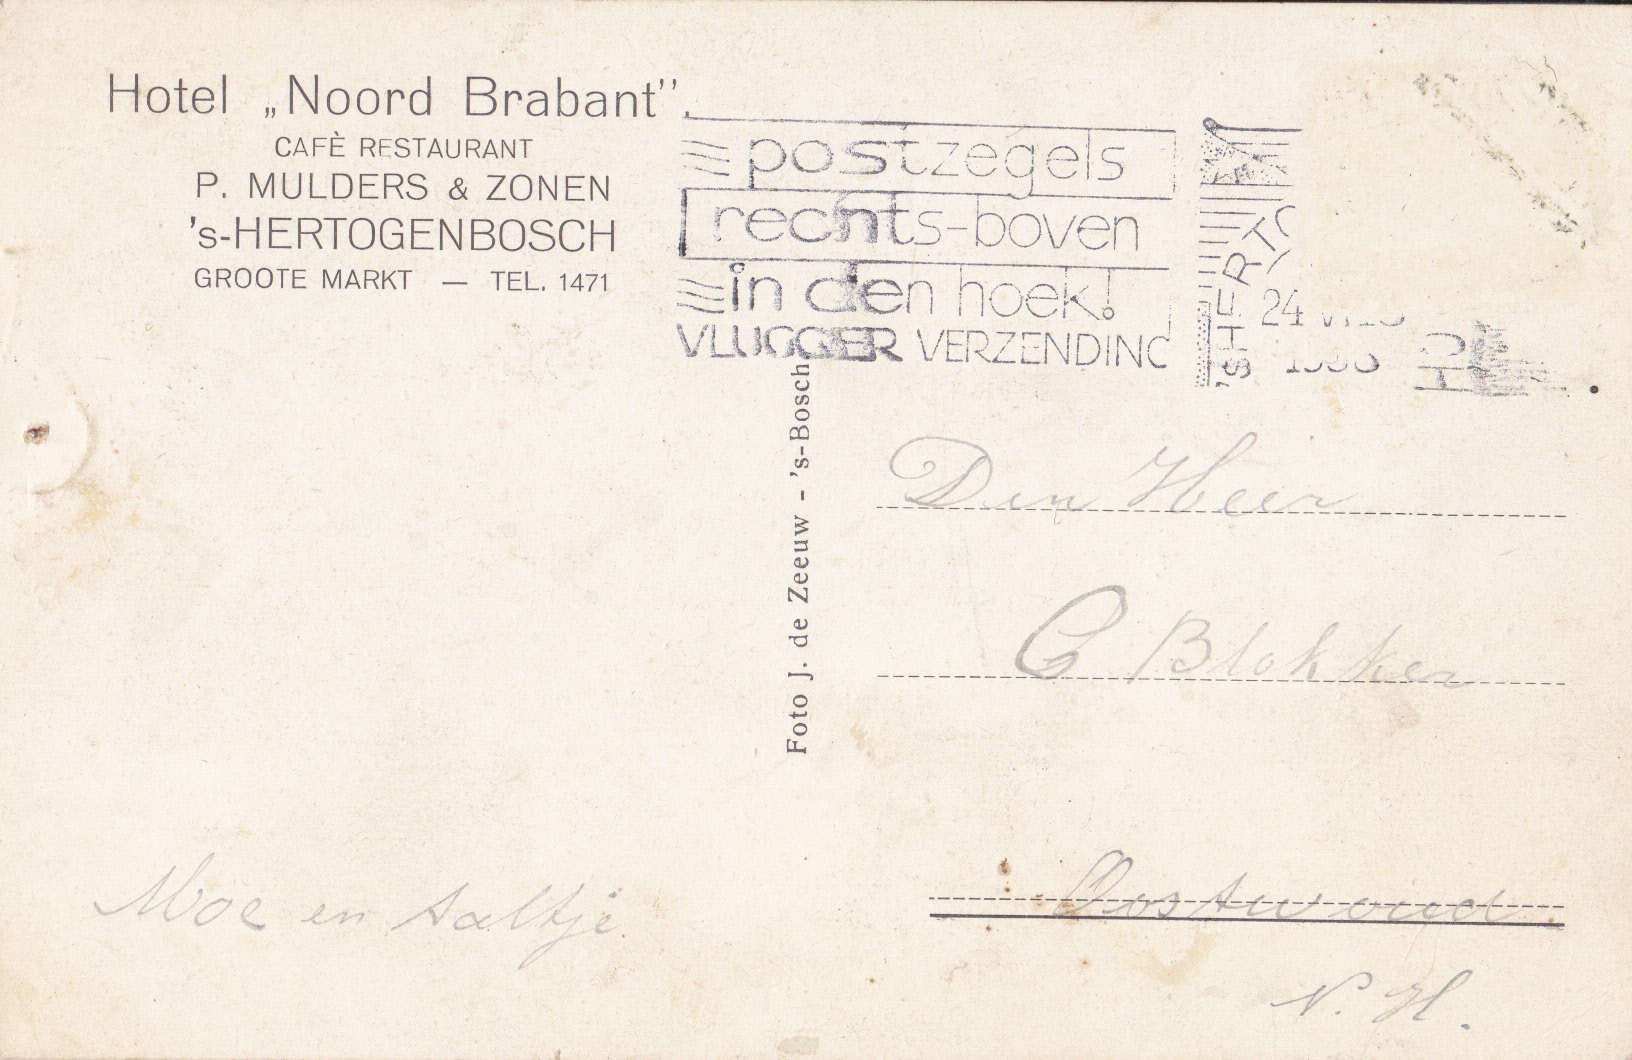 Hotel „Noord Brabant”.
CAFÈ RESTAURANT
P. MULDERS & ZONEN
's-HERTOGENBOSCH
GROOTE MARKT — TEL. 1471
postzegels
rechts-boven
in den hoek!
VLUGGER VERZENDING
'SHERTO
24
Foto J. de Zeeuw - 's-Bosch
Den Heer
C Blokker
Oostwoud.
N. H.
Moe en Aaltje